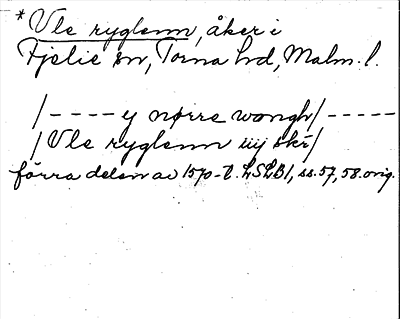 * Vle ryglenn, åker i
Fjelie sn, Torna hd, Malm. l.
/---- y nørre wongh/-----
/Vle ryglenn iiij skr/
förra delen av 1570-t. LSLB1, ss. 57, 58. orig.